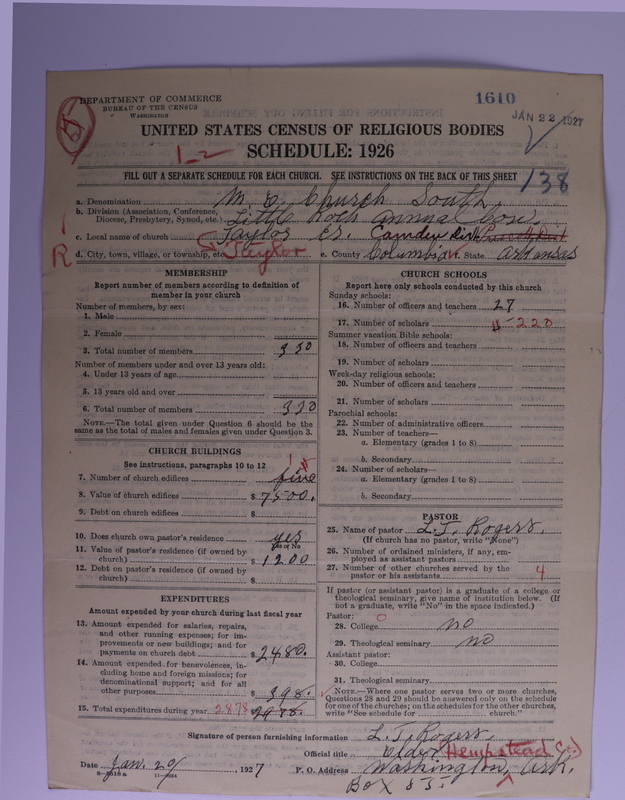 DEPARTMENT OF COMMERCE
BUREAU OF THE CENSUS
WASHINGTON
1610
JAN 22 1927
UNITED STATES CENSUS OF RELIGIOUS BODIES
1-2
SCHEDULE: 1926
FILL OUT A SEPARATE SCHEDULE FOR EACH CHURCH. SEE INSTRUCTIONS ON THE BACK OF THIS SHEET
138
a. Denomination M. E. Church South,
b. Division (Association, Conference, Diocese, Presbytery, Synod, etc.) Little Rock Annual Con.
c. Local name of church Taylor Cr. Camden Dist Prescott Dist
R
d. City, town, village, or township, etc. Taylor e. County Columbia f. State Arkansas
MEMBERSHIP
Report number of members according to definition of
member in your church
Number of members, by sex:
1. Male
2. Female
3. Total number of members 330
Number of members under and over 13 years old:
4. Under 13 years of age
5. 13 years old and over
6. Total number of members 330
NOTE.—The total given under Question 6 should be the
same as the total of males and females given under Question 3.
CHURCH BUILDINGS
See instructions, paragraphs 10 to 12
7. Number of church edifices five
8. Value of church edifices $ 7500.
9. Debt on church edifices $
10. Does church own pastor's residence yes
Yes or No
11. Value of pastor's residence (if owned by
church) $ 1200
12. Debt on pastor's residence (if owned by
church) $
EXPENDITURES
Amount expended by your church during last fiscal year
13. Amount expended for salaries, repairs,
and other running expenses; for im-
provements or new buildings; and for
payments on church debt $ 2480.
14. Amount expended for benevolences, in-
cluding home and foreign missions; for
denominational support; and for all
other purposes $ 398.
15. Total expenditures during year 2878 2978.
CHURCH SCHOOLS
Report here only schools conducted by this church
Sunday schools:
16. Number of officers and teachers 27
17. Number of scholars 220
Summer vacation Bible schools:
18. Number of officers and teachers
19. Number of scholars
Week-day religious schools:
20. Number of officers and teachers
21. Number of scholars
Parochial schools:
22. Number of administrative officers
23. Number of teachers—
a. Elementary (grades 1 to 8)
b. Secondary
24. Number of scholars—
a. Elementary (grades 1 to 8)
b. Secondary
PASTOR
25. Name of pastor L. T. Rogers.
(If church has no pastor, write "None")
26. Number of ordained ministers, if any, em-
ployed as assistant pastors
27. Number of other churches served by the
pastor or his assistants 4
If pastor (or assistant pastor) is a graduate of a college or
theological seminary, give name of institution below. (If
not a graduate, write "No" in the space indicated.)
Pastor:
28. College no
29. Theological seminary no
Assistant pastor:
30. College
31. Theological seminary
NOTE.—Where one pastor serves two or more churches,
Questions 28 and 29 should be answered only on the schedule
for one of the churches; on the schedules for the other churches,
write "See schedule for church."
Signature of person furnishing information L. T. Rogers.
Official title Elder Hempstead Co
Date Jan. 20/, 1927 P. O. Address Washington, Ark.
Box 55.